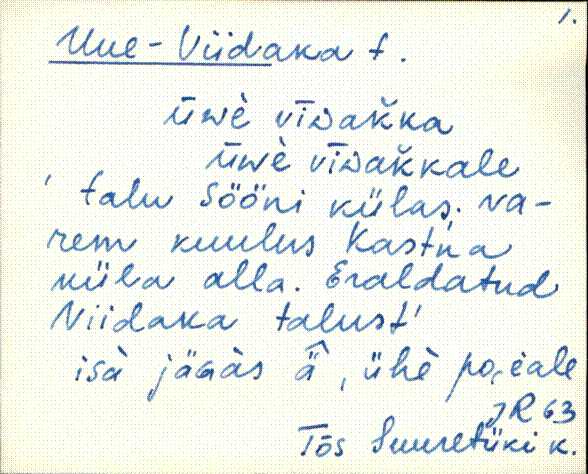 1.
Uue-Viidaka t.
ūwè vīᴅaǩka
ūwè vīᴅaǩkale
' talu Sööni külas. va-
rem kuulus Kastna
küla alla. Eraldatud
Viidaka talust'
isà jäGàs ä̂, ühè
JR 63
Tõs Suuretüki k.